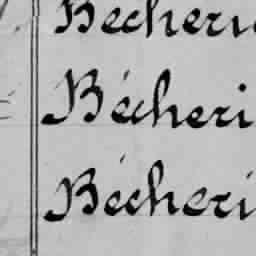 Bécheri
Bécheri
Bécheri